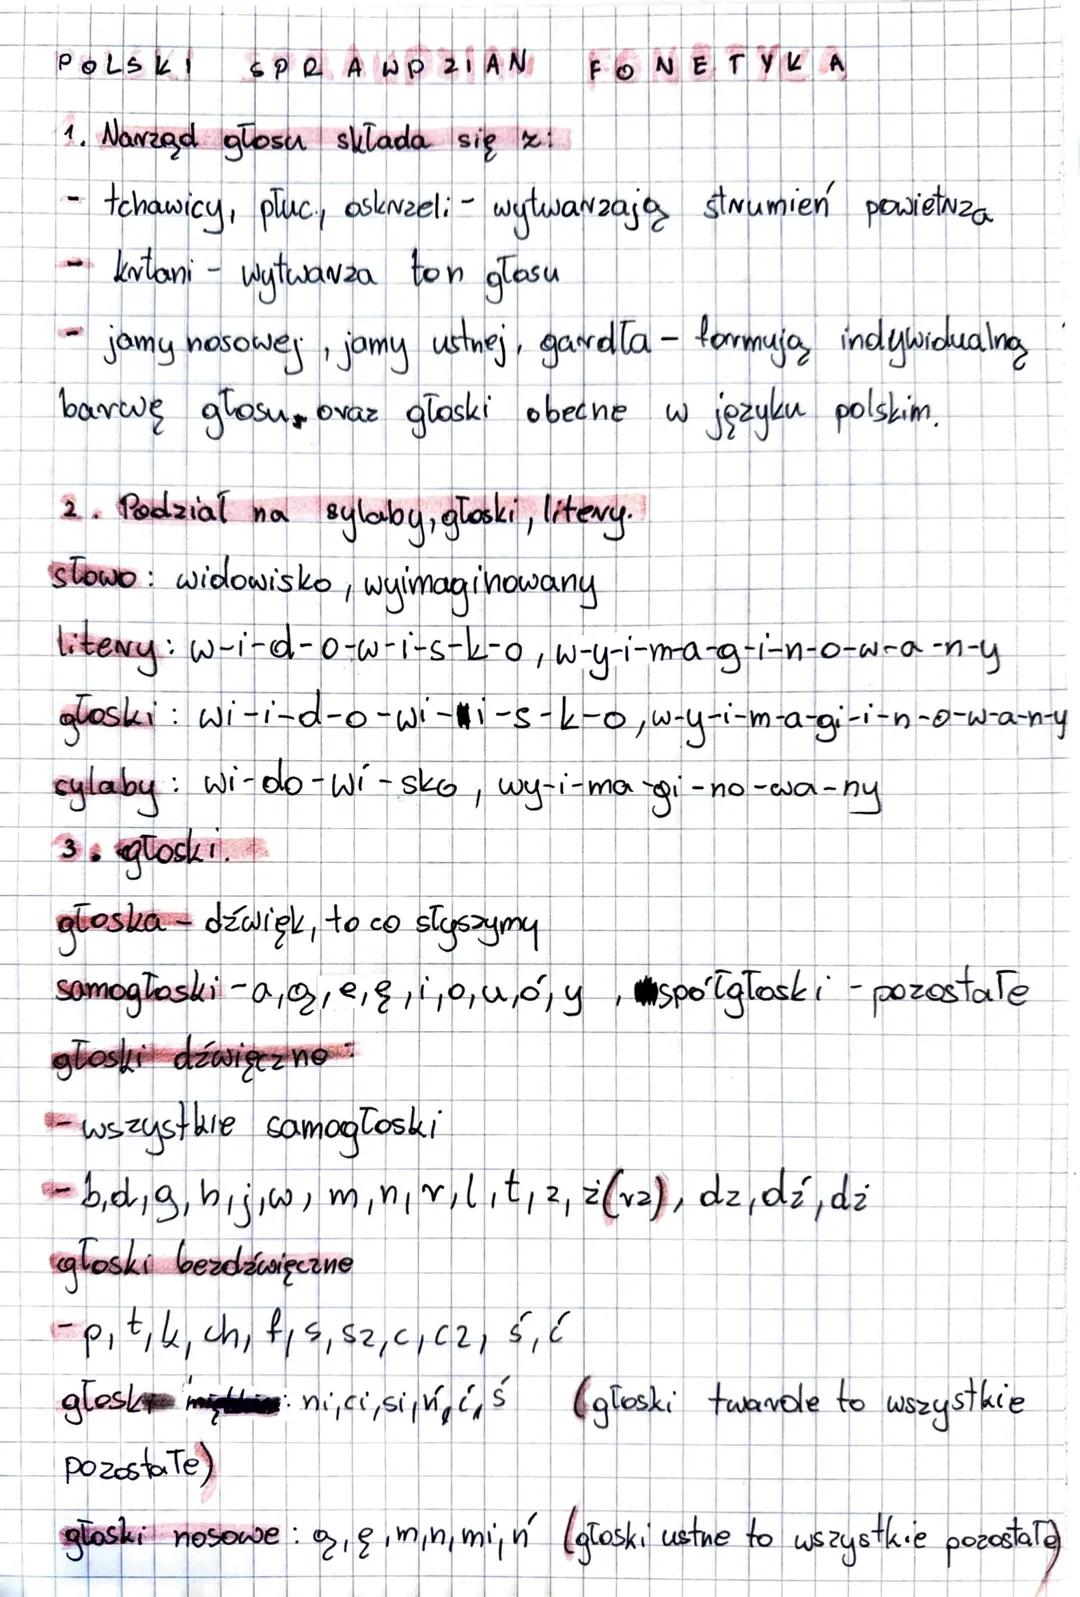 POLSKI SPRAWDZIAN FONETYKA
1. Narząd głosu składa się z:
- tchawicy, płuc, oskrzeli - wytwarzają strumień powietrza
- krtani - wytwarza ton głosu
- jamy nosowej, jamy ustnej, gardła - formują indywidualną
barwę głosu oraz głoski obecne w języku polskim.
2. Podział na sylaby, głoski, litery.
słowo: widowisko, wyimaginowany
litery: w-i-d-o-w-i-s-k-o, w-y-i-m-a-g-i-n-o-w-a-n-y
głoski: wi-i-d-o-wi-i-s-k-o, w-y-i-m-a-gi-i-n-o-w-a-n-y
sylaby: wi-do-wi-sko, wy-i-ma-gi-no-wa-ny
3. głoski.
głoska - dźwięk, to co słyszymy
samogłoski - a, ą, e, ę, i, o, u, ó, y, spółgłoski - pozostałe
głoski dźwięczne:
- wszystkie samogłoski
- b, d, g, h, j, w, m, n, r, l, ł, z, ż (rz), dz, dź, dż
głoski bezdźwięczne
- p, t, k, ch, f, s, sz, c, cz, ś, ć
głoski : ni, ci, si, ń, ć, ś (głoski twarde to wszystkie
pozostałe)
głoski nosowe: ą, ę, m, n, mi, ń (głoski ustne to wszystkie pozostałe)